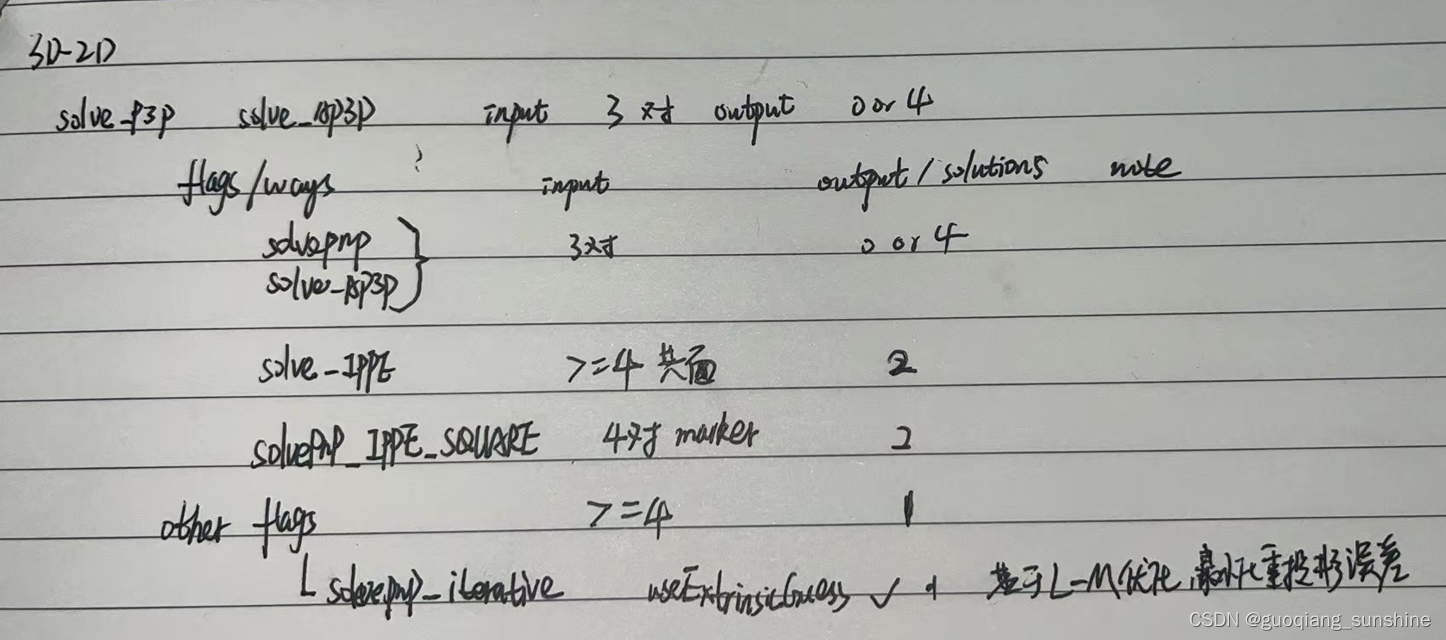 3D-2D
solve_P3P solve_AP3P input 3对 output 0 or 4
flags/ways ? input output/solutions note
solvepnp 3对 0 or 4
solve_AP3P
solve_IPPE >=4 共面 2
solvePnP_IPPE_SQUARE 4对 marker 2
other flags >=4 1
solvepnp_iterative useExtrinsicGuess ✓ 基于L-M优化,最小化重投影误差
CSDN @guoqiang_sunshine